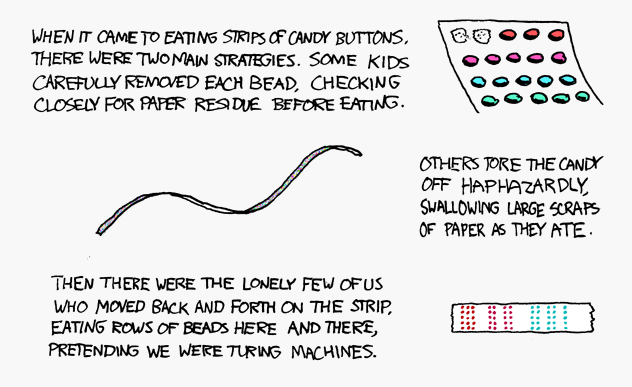 WHEN IT CAME TO EATING STRIPS OF CANDY BUTTONS,
THERE WERE TWO MAIN STRATEGIES. SOME KIDS
CAREFULLY REMOVED EACH BEAD, CHECKING
CLOSELY FOR PAPER RESIDUE BEFORE EATING.
OTHERS TORE THE CANDY
OFF HAPHAZARDLY,
SWALLOWING LARGE SCRAPS
OF PAPER AS THEY ATE.
THEN THERE WERE THE LONELY FEW OF US
WHO MOVED BACK AND FORTH ON THE STRIP,
EATING ROWS OF BEADS HERE AND THERE,
PRETENDING WE WERE TURING MACHINES.